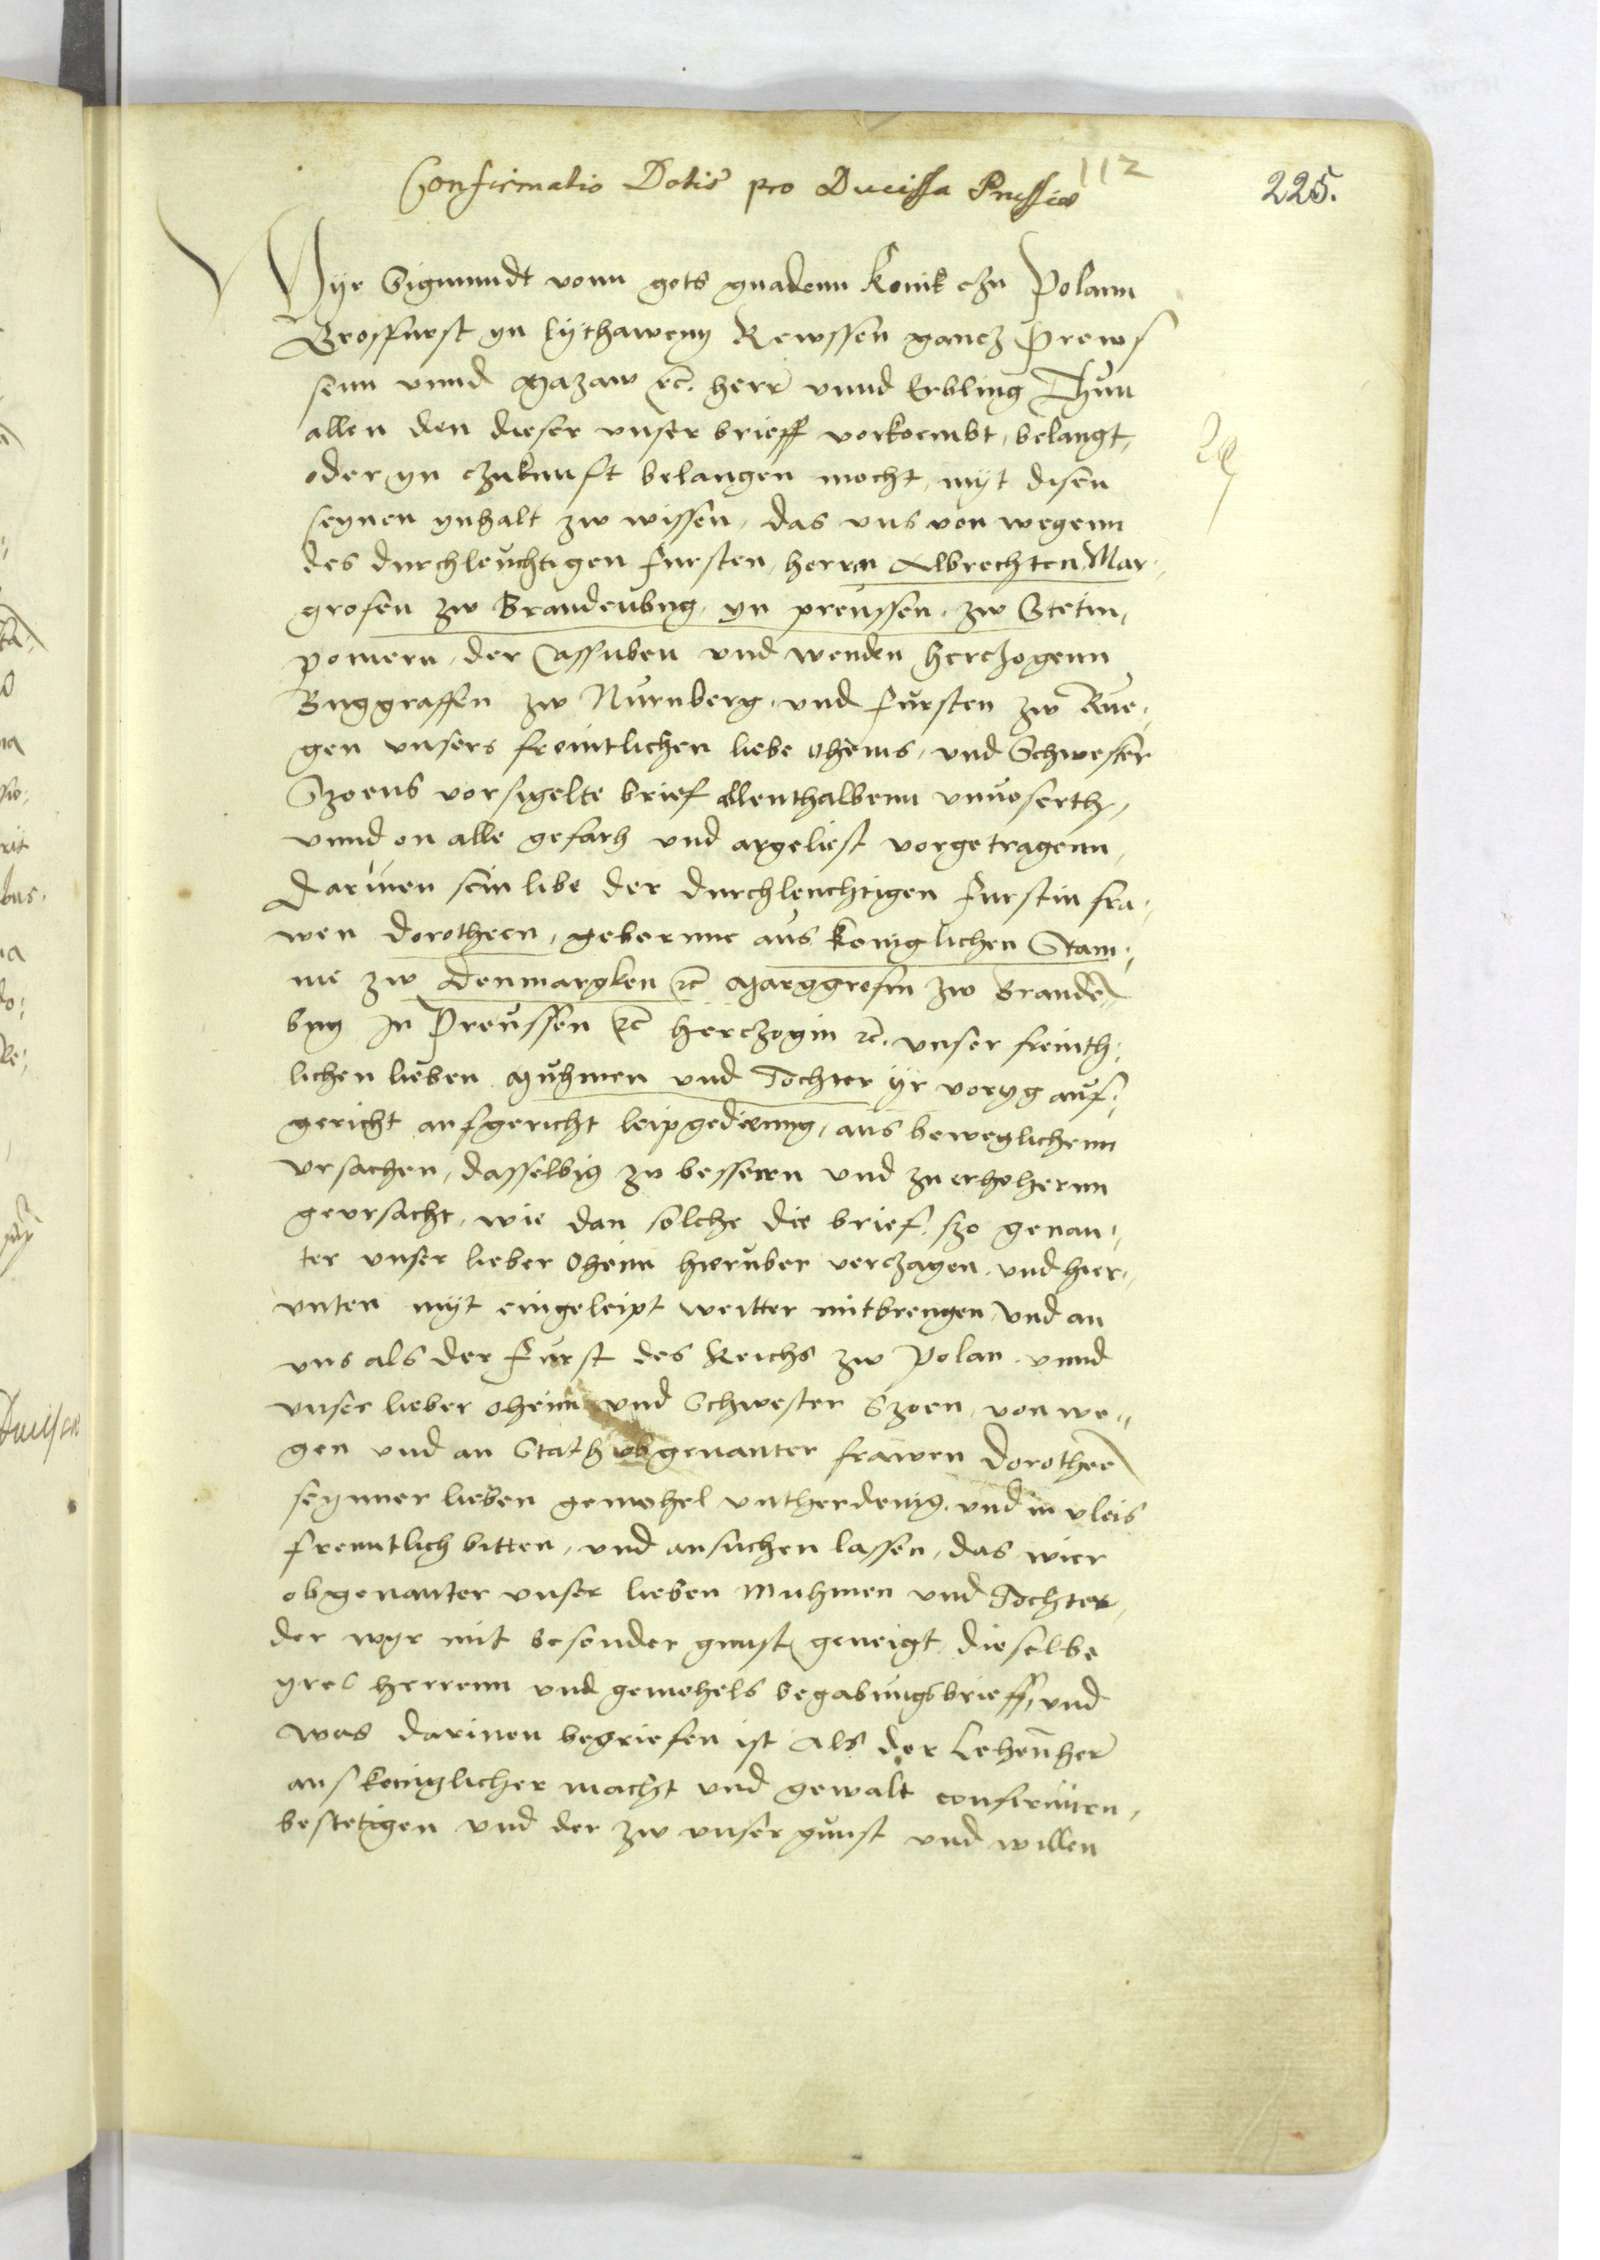 Confirmatio Dotis pro Ducissa Prussie
112
225.
Wyr Sigmundt vonn gots gnadenn Konik czu Polann
Grosfurst yn lythaweny Rewssen gancz Prews
senn vnnd Mazaw etc. herr vnnd Erbling Thun
allen den dieser vnser brieff vorkoembt, belangt,
oder yn czukunfft belangen mocht, myt disen
seynen ynhalt zw wissen, das vns von wegenn
des durchleuchtigen fursten, herrn Albrechten Mar-
grofen zw Brandenbug, yn preussen, zw Stetin,
pomern, der Cassuben vnd wenden herczogenn
Buggraffen zw Nurnberg, vnd fursten zw Rue-
gen vnsers freintlichen liebe Ohems, vnd Schwester
Szoens vorsigelte brief allenthalbenn vnuoserth,
vnnd on alle gefarh vnd argeliest vorgetragenn,
Darinen sein libe der durchleuchtigen furstin fra-
wen dorotheen, gebornne aus koniglichen Stam-
me zw denmargken etc Marggrofin zw Branden
bug In Preussen etc herczogin etc. vnser freinth-
lichen lieben Muhmen vnd Tochter yr voryg auf-
gericht aufgericht leipgedieng, aus beweglichenn
vrsachen, dasselbig zu bessern vnd zu erhohernn
gevrsacht, wie dan solche die brief, szo genan-
ter vnser lieber Oheim hieruber verczagen, vnd hier-
vnten myt eingeleipt weitter mitbrengen, vnd an
vns als der furst des Reichs zw Polan, vnnd
vnser lieber oheim vnd Schwester Szoen, von we-
gen vnd an Stath obgenanter frawen Dorotheen
seynner lieben gemehel vntherdenig, vnd in vleis
freuntlich bitten, vnd ansuchen lassen, das wier
obgenanter vnser lieben Muhmen vnd Tochter,
der wyr mit besonder gunst geneigt, dieselbe
yres herrenn vnd gemehels begabungsbrieff, vnd
was darinen begriefen ist Als der Lehenher
aus koniglicher macht vnd gewalt confermiren,
bestetigen vnd der zw vnser gunst vnd willen